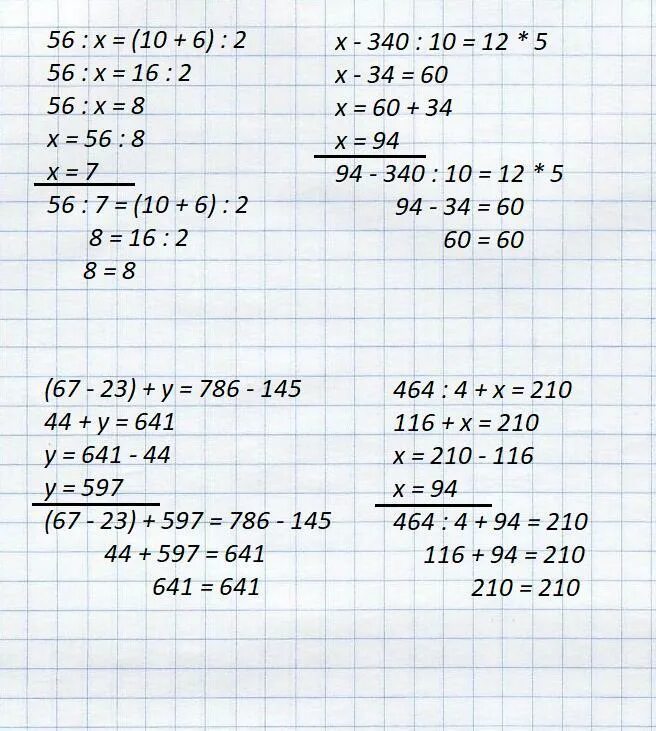 56 : x = (10 + 6) : 2
56 : x = 16 : 2
56 : x = 8
x = 56 : 8
x = 7
56 : 7 = (10 + 6) : 2
8 = 16 : 2
8 = 8
x - 340 : 10 = 12 * 5
x - 34 = 60
x = 60 + 34
x = 94
94 - 340 : 10 = 12 * 5
94 - 34 = 60
60 = 60
(67 - 23) + y = 786 - 145
44 + y = 641
y = 641 - 44
y = 597
(67 - 23) + 597 = 786 - 145
44 + 597 = 641
641 = 641
464 : 4 + x = 210
116 + x = 210
x = 210 - 116
x = 94
464 : 4 + 94 = 210
116 + 94 = 210
210 = 210